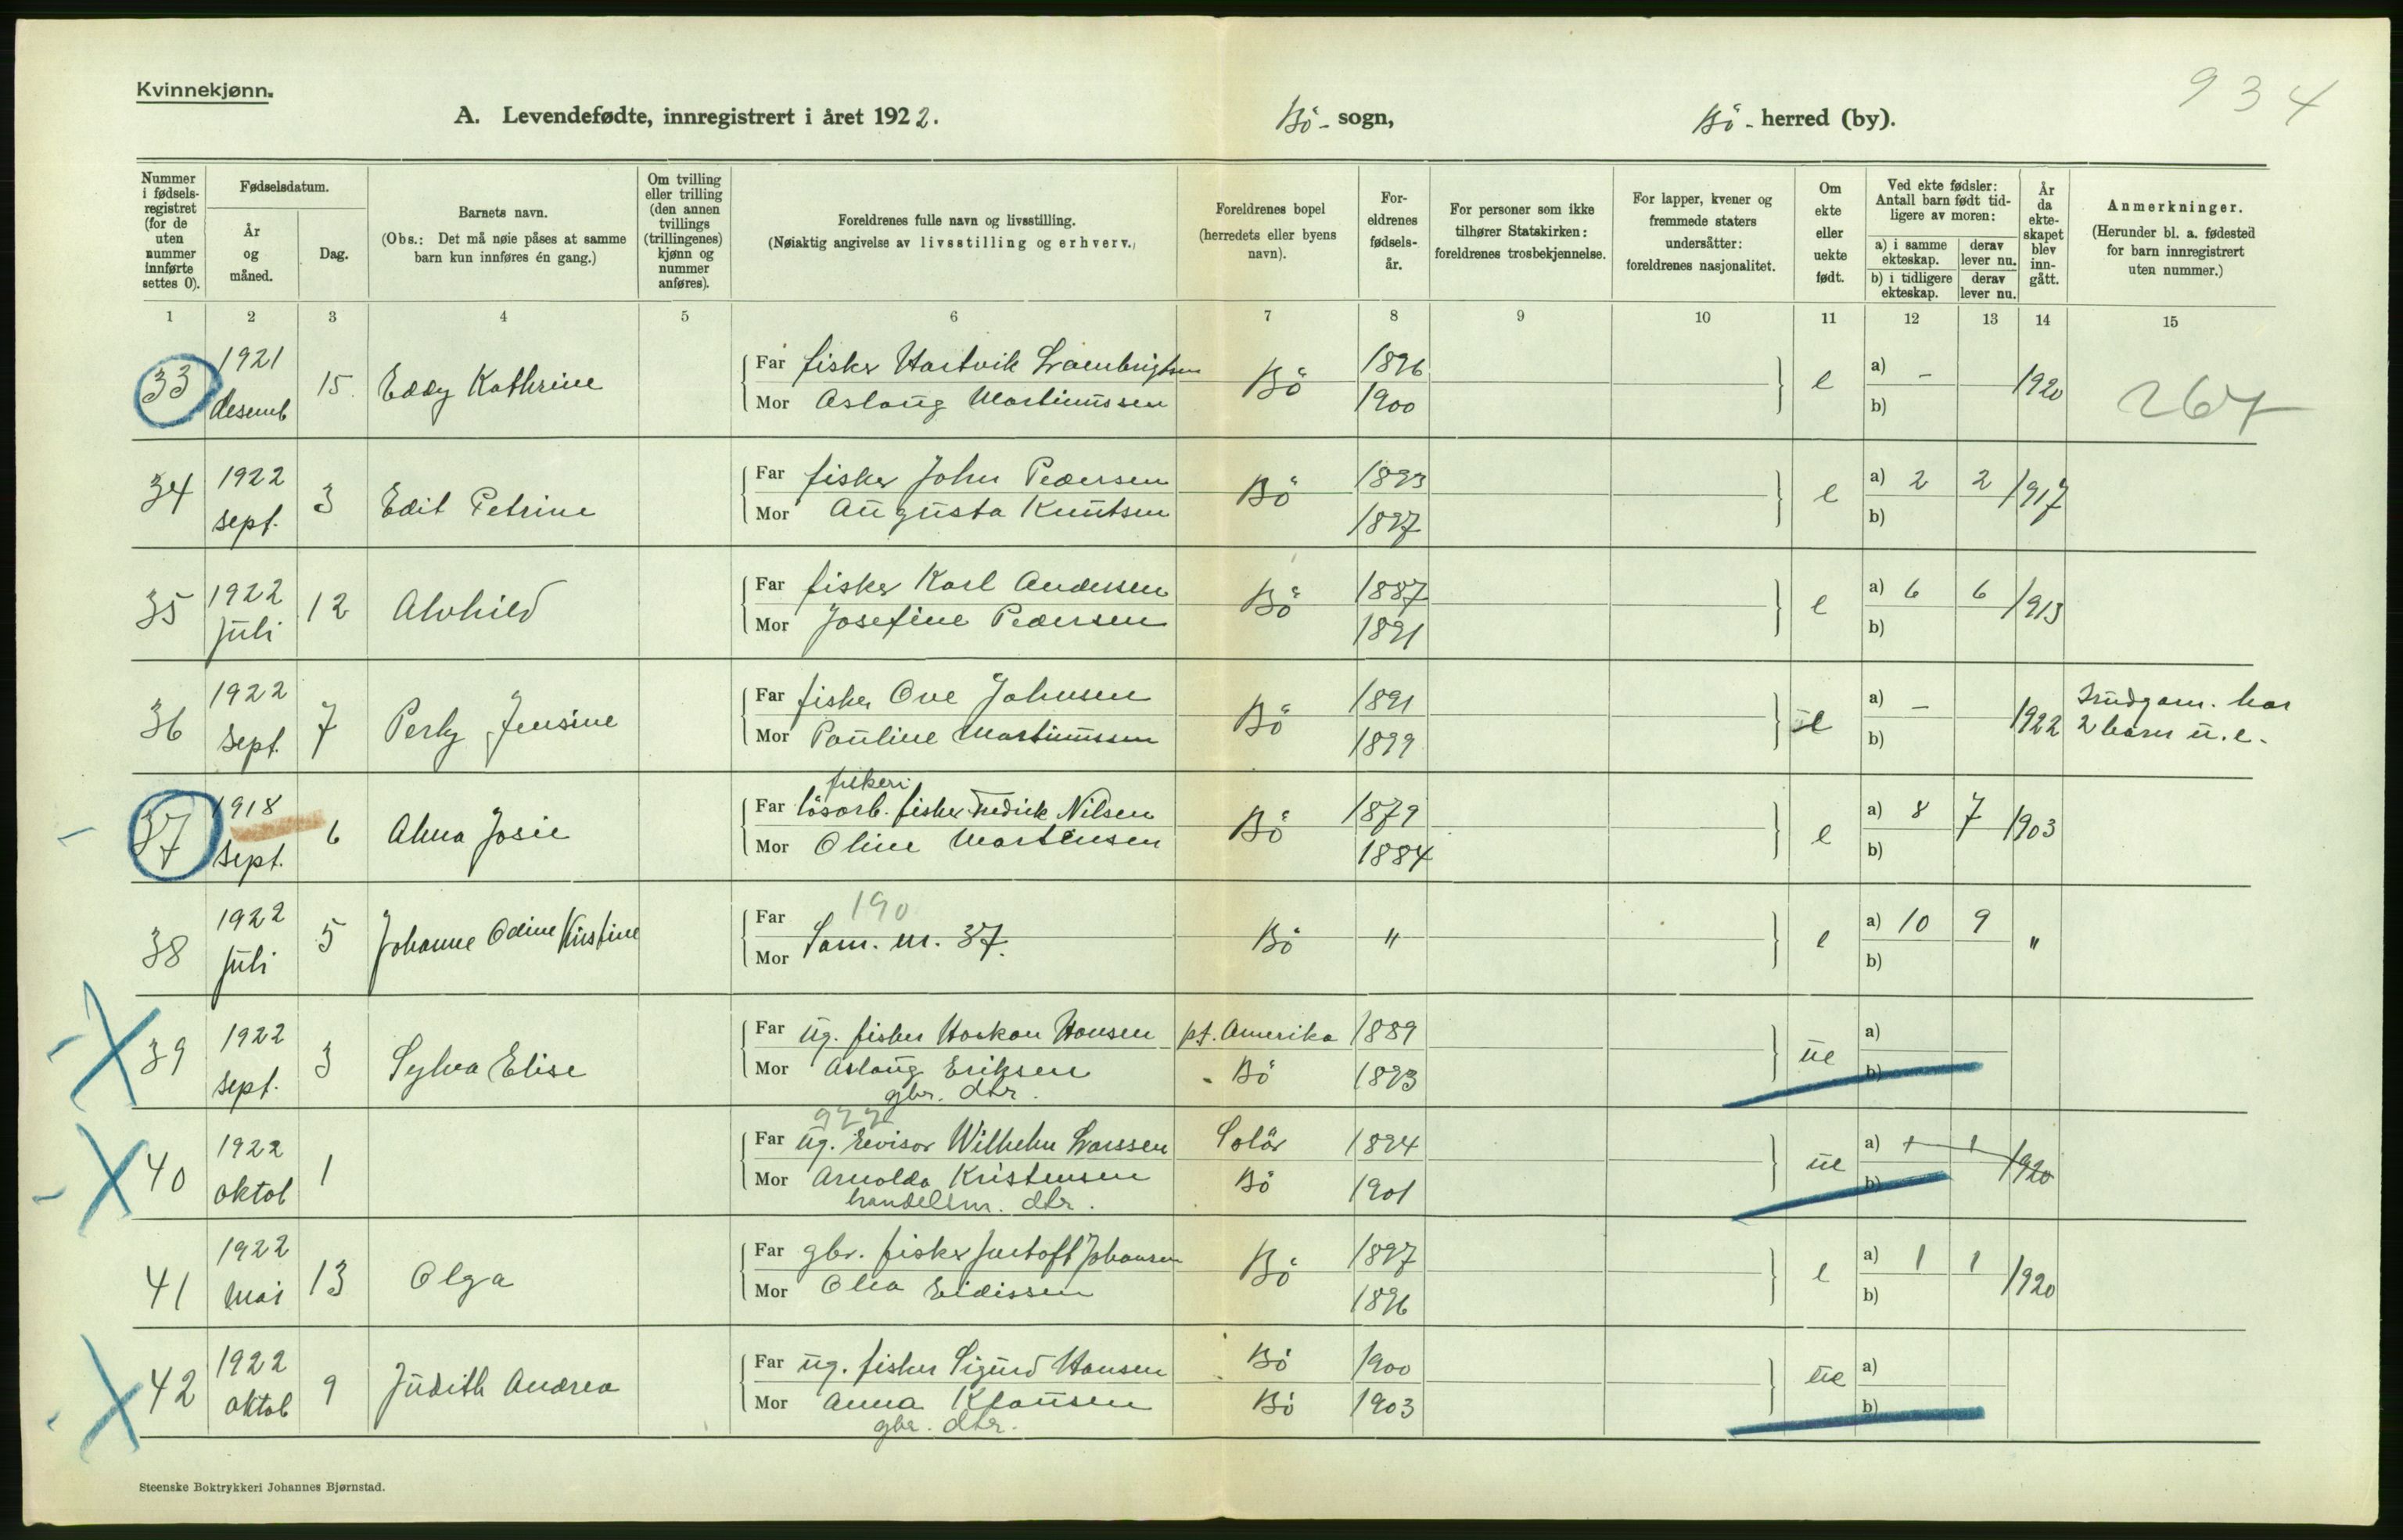 Kvinnekjønn.
934
A. Levendefødte, innregistrert i året 1922.
Bö - sogn,
Bö - herred (by).
Nummer i fødselsregistret (for de uten nummer innførte settes 0).
Fødselsdatum.
År og måned.
Dag.
Barnets navn.
(Obs.: Det må nøie påses at samme barn kun innføres én gang.)
Om tvilling eller trilling (den annen tvillings (trillingenes) kjønn og nummer anføres).
Foreldrenes fulle navn og livsstilling.
(Nøiaktig angivelse av livsstilling og erhverv.)
Foreldrenes bopel (herredets eller byens navn).
Foreldrenes fødselsår.
For personer som ikke tilhører Statskirken: foreldrenes trosbekjennelse.
For lapper, kvener og fremmede staters undersåtter: foreldrenes nasjonalitet.
Om ekte eller uekte født.
Ved ekte fødsler: Antall barn født tidligere av moren:
a) i samme ekteskap.
derav lever nu.
b) i tidligere ekteskap.
derav lever nu.
År da ekteskapet blev inngått.
Anmerkninger.
(Herunder bl. a. fødested for barn innregistrert uten nummer.)
1 2 3 4 5 6 7 8 9 10 11 12 13 14 15
33 1921 desemb 15. Eddy Kathrine
Far fisker Hartvik Lambrigtsen Bö 1896 e a) - 1920 267
Mor Aslaug Martinussen 1900 b)
34 1922 sept. 3 Edit Petrine
Far fisker John Pedersen Bö 1893 e a) 2 2 1917
Mor Augusta Knutsen 1897 b)
35 1922 juli 12 Alvhild
Far fisker Karl Andersen Bö 1887 e a) 6 6 1913
Mor Josefine Pedersen 1891 b)
36 1922 sept. 7 Perly Jensine
Far fisker Ove Johnsen Bö 1891 e a) - 1922
Mor Pauline Martinussen 1899 b)
har
2 barn u.e.
37 1918 sept. 6 Alma Josie
fiskeri
Far lösarb. fisker Fredrik Nilsen Bö 1879 e a) 8 7 1903
Mor Oline Martensen 1884 b)
38 1922 juli 5 Johanne Odine Kristine
190
Far
Mor Sam. m. 37. Bö " e a) 10 9 "
b)
39 1922 sept. 3 Sylva Elise
Far ug. fisker Haakon Hansen pt. Amerika 1889 ue a)
Mor Aslaug Eriksen Bö 1893 b)
gbr. dtr.
40 1922 oktob 1
922
Far ug. revisor Wilhelm Larssen Solör 1894 ue a) 1 1 1920
Mor Arnolda Kristensen Bö 1901 b)
handelsm. dtr.
41 1922 mai 13 Olga
Far gbr. fisker Justoft Johansen Bö 1897 e a) 1 1 1920
Mor Olea Eidissen 1896 b)
42 1922 oktob 9 Judith Andrea
Far ug. fisker Sigurd Hansen Bö 1900 ue a)
Mor Anna Klausen Bö 1903 b)
gbr. dtr.
Steenske Boktrykkeri Johannes Bjørnstad.